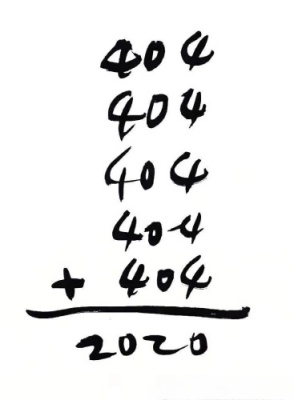 404
404
404
404
+ 404
2020